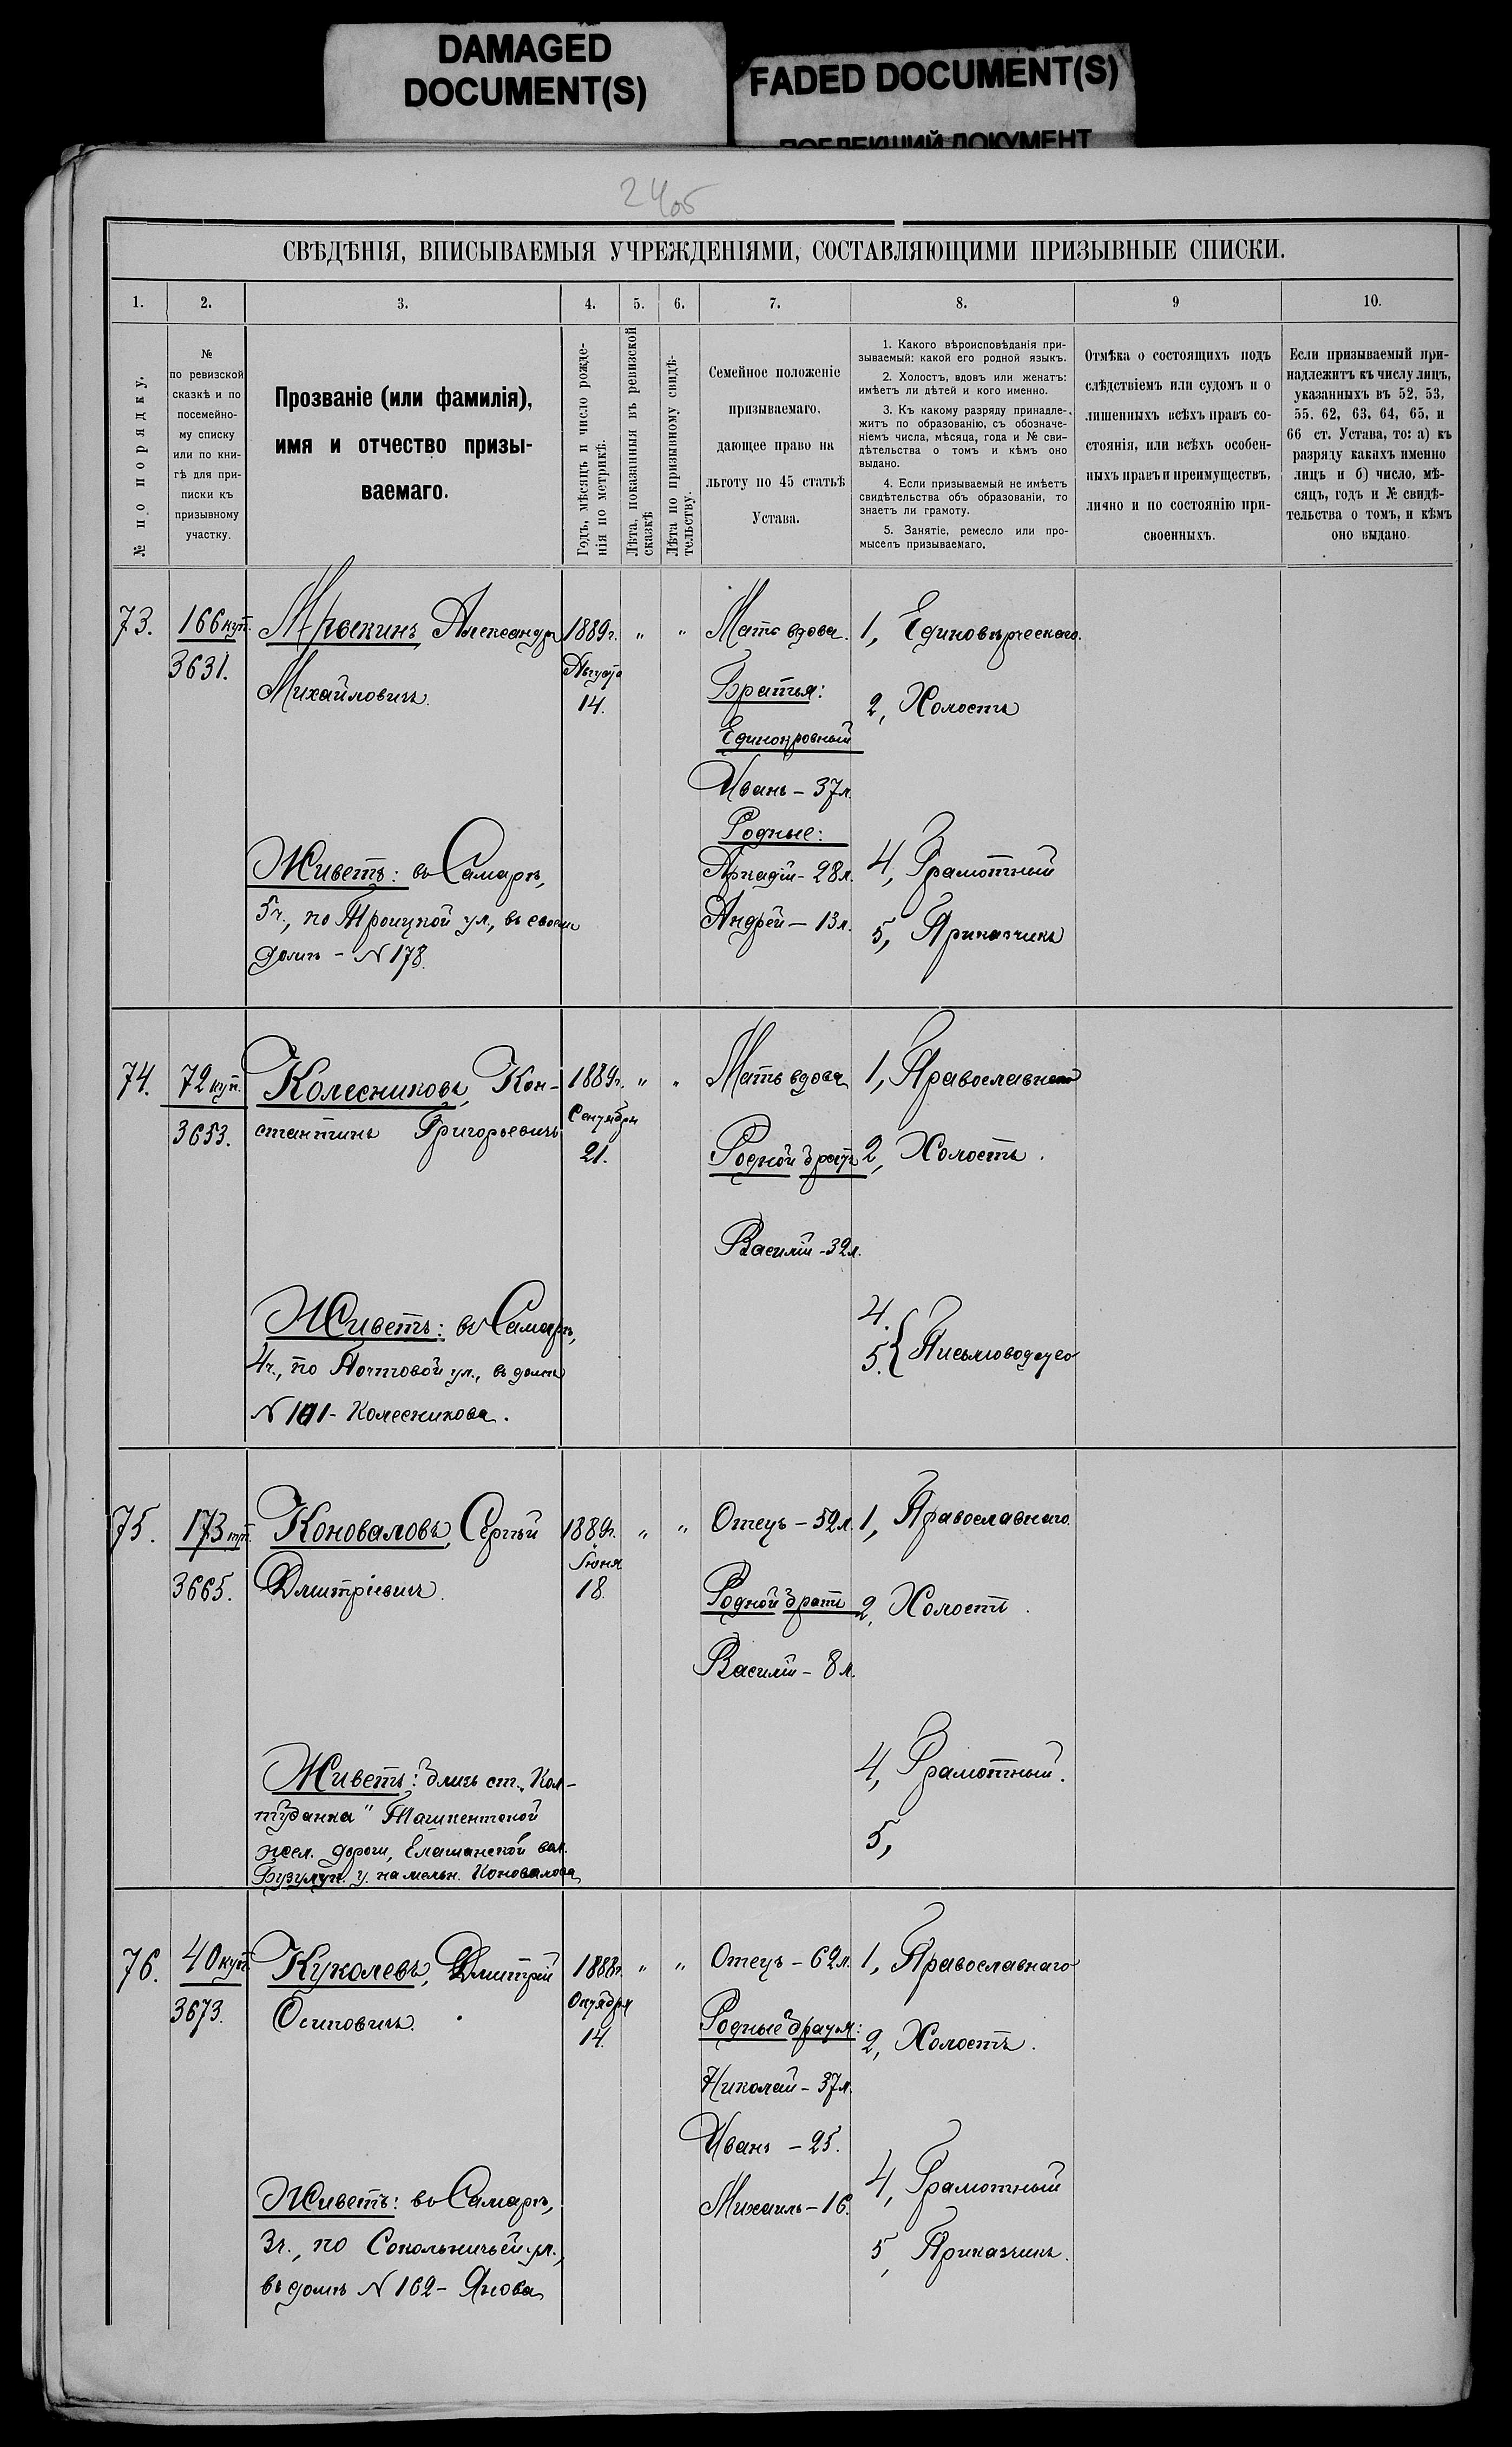 DAMAGED
DOCUMENT(S)
FADED DOCUMENT(S)
ПОБЛЕКШИЙ ДОКУМЕНТ
24об
СВѢДѢНІЯ, ВПИСЫВАЕМЫЯ УЧРЕЖДЕНІЯМИ, СОСТАВЛЯЮЩИМИ ПРИЗЫВНЫЕ СПИСКИ.
1. 2. 3. 4. 5. 6. 7. 8. 9 10.
№ по порядку.
№
по ревизской
сказкѣ и по
посемейно-
му списку
или по кни-
гѣ для при-
писки къ
призывному
участку.
Прозваніе (или фамилія),
имя и отчество призы-
ваемаго.
Годъ, мѣсяцъ и число рожде-
нія по метрикѣ.
Лѣта, показанныя въ ревизской
сказкѣ
Лѣта по призывному свидѣ-
тельству.
Семейное положеніе
призываемаго,
дающее право на
льготу по 45 статьѣ
Устава.
1. Какого вѣроисповѣданія при-
зываемый: какой его родной языкъ.
2. Холостъ, вдовъ или женатъ:
имѣетъ ли дѣтей и кого именно.
3. Къ какому разряду принадле-
житъ по образованію, съ обозначе-
ніемъ числа, мѣсяца, года и № сви-
дѣтельства о томъ и кѣмъ оно
выдано.
4. Если призываемый не имѣетъ
свидѣтельства объ образованіи, то
знаетъ ли грамоту.
5. Занятіе, ремесло или про-
мыселъ призываемаго.
Отмѣка о состоящихъ подъ
слѣдствіемъ или судомъ и о
лишенныхъ всѣхъ правъ со-
стоянія, или всѣхъ особен-
ныхъ правъ и преимуществъ,
лично и по состоянію при-
своенныхъ.
Если призываемый при-
надлежитъ къ числу лицъ,
указанныхъ въ 52, 53,
55, 62, 63, 64, 65, и
66 ст. Устава, то: а) къ
разряду какихъ именно
лицъ и б) число, мѣ-
сяцъ, годъ и № свидѣ-
тельства о томъ, и кѣмъ
оно выдано.
73.
166 куп.
3631.
Мрыкинъ, Александръ
Михайловичъ.
Живетъ: въ Самарѣ,
5ч., по Троицкой ул., въ своемъ
домѣ - N 178.
1889г.
Августа
14.
" "
Мать вдова.
Братья:
Единокровный
Иванъ - 37л.
Родные:
Аркадій - 28л.
Андрей - 13л.
1, Единовѣрческаго.
2, Холостъ
4, Грамотный
5, Приказчикъ
74.
72 куп.
3653.
Колесниковъ, Кон-
стантинъ Григорьевичъ
Живетъ: въ Самарѣ,
4ч., по Почтовой ул., въ домѣ
N 101 - Колесникова.
1889г.
Сентября
21.
" "
Мать вдова
Родной братъ
Василій - 32л.
1, Православнаго
2, Холостъ.
4.
5. { Письмоводство
75.
173 куп.
3665.
Коноваловъ, Сергѣй
Дмитріевичъ.
Живетъ: близъ ст. "Кол-
тубанка" Ташкентской
жел. дороги, Елшанской вол.
Бузулук. у. на мельн. Коновалова
1889г.
Іюня
18.
" "
Отецъ - 52л.
Родной братъ
Василій - 8л.
1, Православнаго.
2, Холостъ.
4, Грамотный.
5,
76.
40 куп.
3673.
Куколевъ, Дмитрій
Осиповичъ.
Живетъ: въ Самарѣ,
3ч., по Сокольничьей ул.,
въ домѣ N 162 - Янова
1888г.
Октября
14.
" "
Отецъ - 62л.
Родные братья:
Николай - 37л.
Иванъ - 25.
Михаилъ - 16.
1, Православнаго
2, Холостъ.
4, Грамотный
5, Приказчикъ.